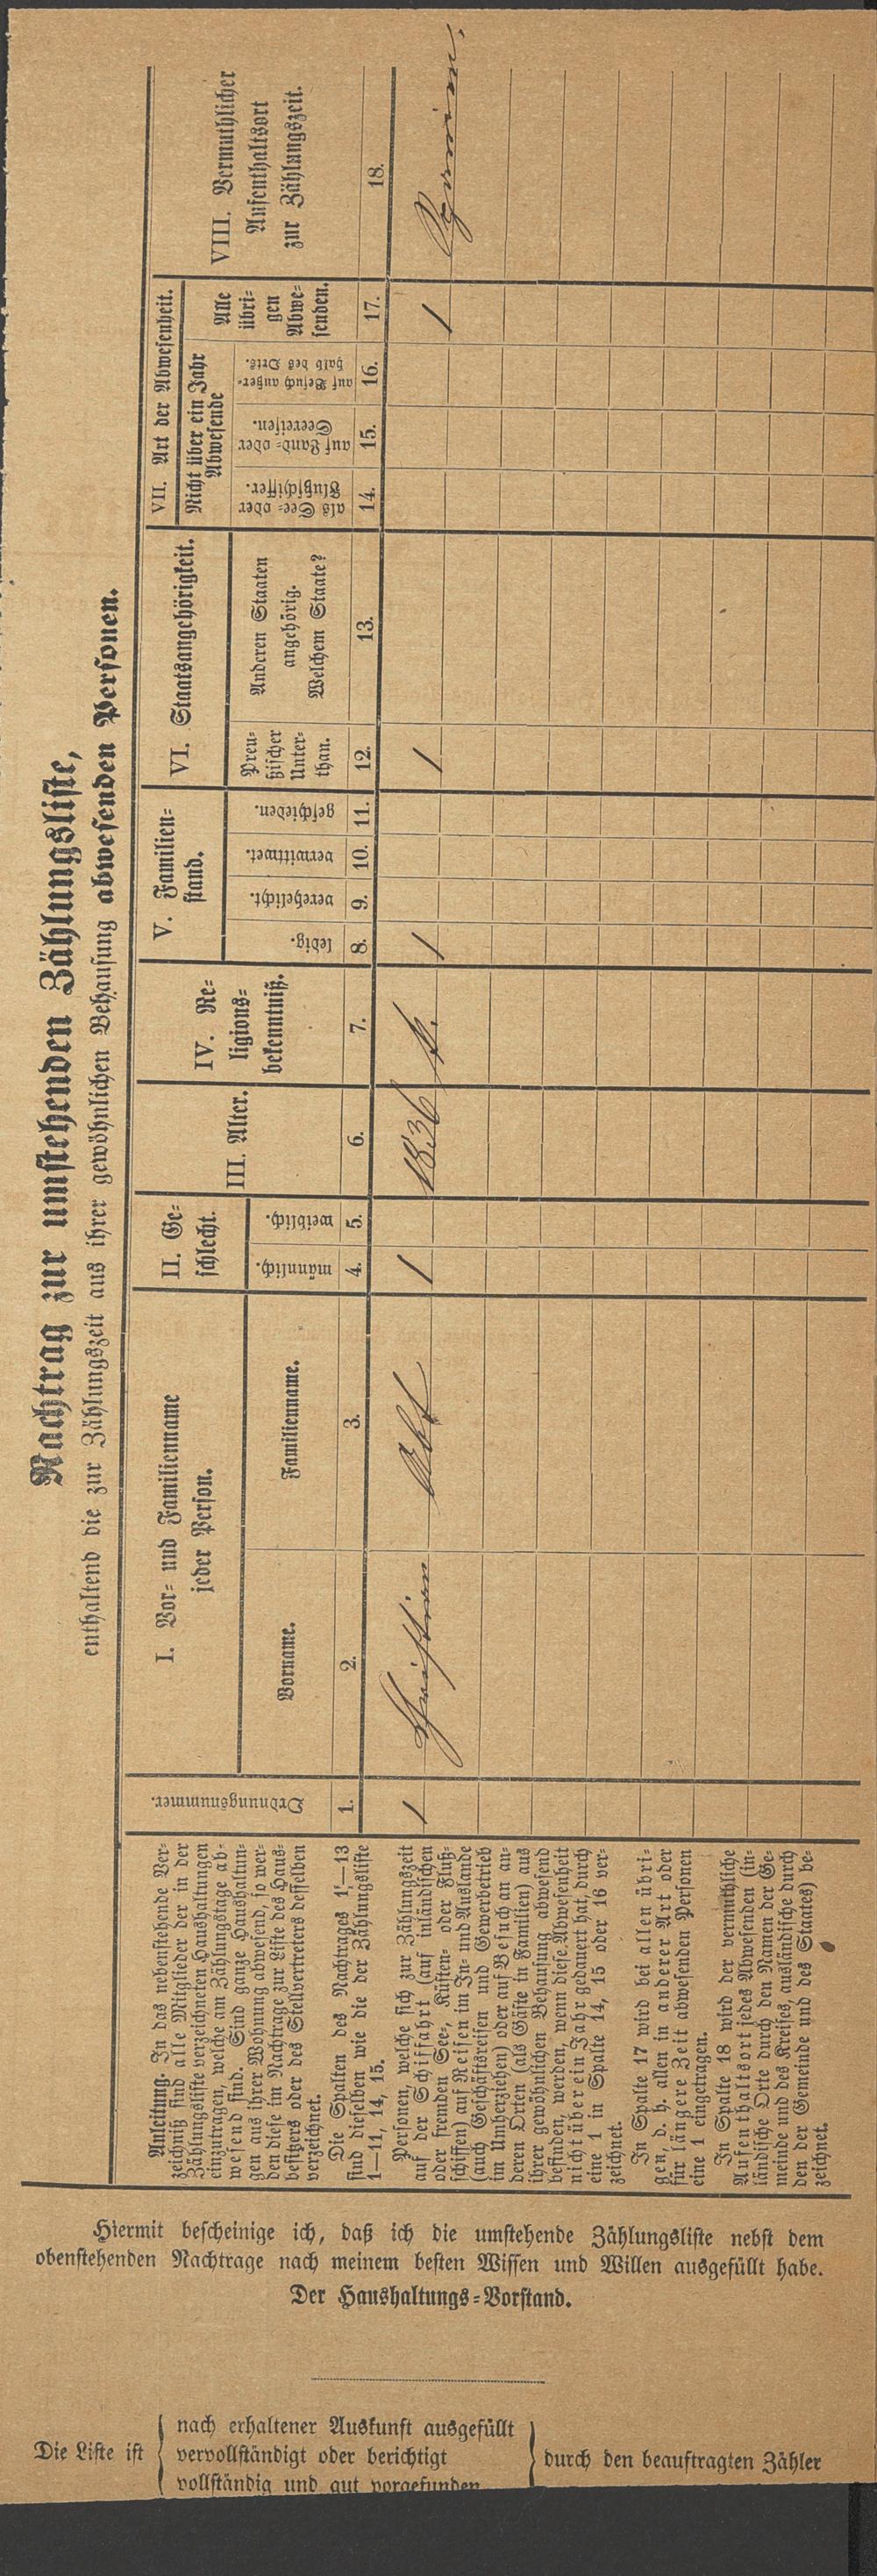 Nachtrag zur umstehenden Zählungsliste,
enthaltend die zur Zählungszeit aus ihrer gewöhnlichen Behausung abwesenden Personen.
Anleitung. In das nebenstehende Ver-
zeichniß sind alle Mitglieder der in der
Zählungsliste verzeichneten Haushaltungen
einzutragen, welche am Zählungstage ab-
wesend sind. Sind ganze Haushaltun-
gen aus ihrer Wohnung abwesend, so wer-
den diese im Nachtrage zur Liste des Haus-
besitzers oder des Stellvertreters desselben
verzeichnet.
Die Spalten des Nachtrages 1—13
sind dieselben wie die der Zählungsliste
1—11, 14, 15.
Personen, welche sich zur Zählungszeit
auf der Schiffahrt (auf inländischen
oder fremden See-, Küsten- oder Fluß-
schiffen) auf Reisen im In- und Auslande
(auch Geschäftsreisen und Gewerbetrieb
im Umherziehen) oder auf Besuch an an-
deren Orten (als Gäste in Familien) aus
ihrer gewöhnlichen Behausung abwesend
befinden, werden, wenn diese Abwesenheit
nicht über ein Jahr gedauert hat, durch
eine 1 in Spalte 14, 15 oder 16 ver-
zeichnet.
In Spalte 17 wird bei allen übri-
gen, d. h. allen in anderer Art oder
für längere Zeit abwesenden Personen
eine 1 eingetragen.
In Spalte 18 wird der vermuthliche
Aufenthaltsort jedes Abwesenden (in-
ländische Orte durch den Namen der Ge-
meinde und des Kreises, ausländische durch
den der Gemeinde und des Staates) be-
zeichnet.
Ordnungsnummer.
I. Vor- und Familienname
jeder Person.
Vorname.
Familienname.
II. Ge-
schlecht.
männlich.
weiblich.
III. Alter.
IV. Re-
ligions-
bekenntniß.
V. Familien-
stand.
ledig.
verehelicht.
verwittwet.
geschieden.
VI. Staatsangehörigkeit.
Preu-
ßischer
Unter-
than.
Anderen Staaten
angehörig.
Welchem Staate?
VII. Art der Abwesenheit.
Nicht über ein Jahr
Abwesende
als See- oder
Flußschiffer.
auf Land- oder
Seereisen.
auf Besuch außer-
halb des Orts.
Alle
übri-
gen
Abwe-
senden.
VIII. Vermuthlicher
Aufenthaltsort
zur Zählungszeit.
1. 2. 3. 4. 5. 6. 7. 8. 9. 10. 11. 12. 13. 14. 15. 16. 17. 18.
1 Christian Abt 1 1836 k. 1 1 1
Hiermit bescheinige ich, daß ich die umstehende Zählungsliste nebst dem
obenstehenden Nachtrage nach meinem besten Wissen und Willen ausgefüllt habe.
Der Haushaltungs-Vorstand.
Die Liste ist { nach erhaltener Auskunft ausgefüllt
vervollständigt oder berichtigt } durch den beauftragten Zähler
vollständig und gut vorgefunden